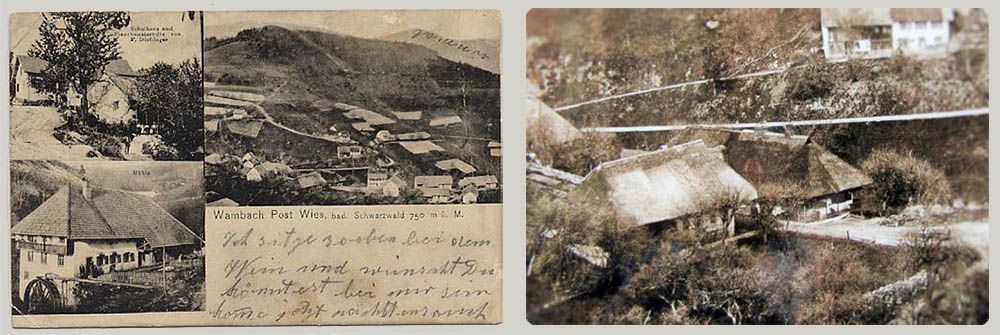 Schulhaus und
F. Dörflinger
Mühle
Wambach Post Wies, bad. Schwarzwald 750 m ü. M.
Ich sitze soeben bei dem
Wein und wünscht Du
könntest bei mir sein
komme jetzt nächstens auch